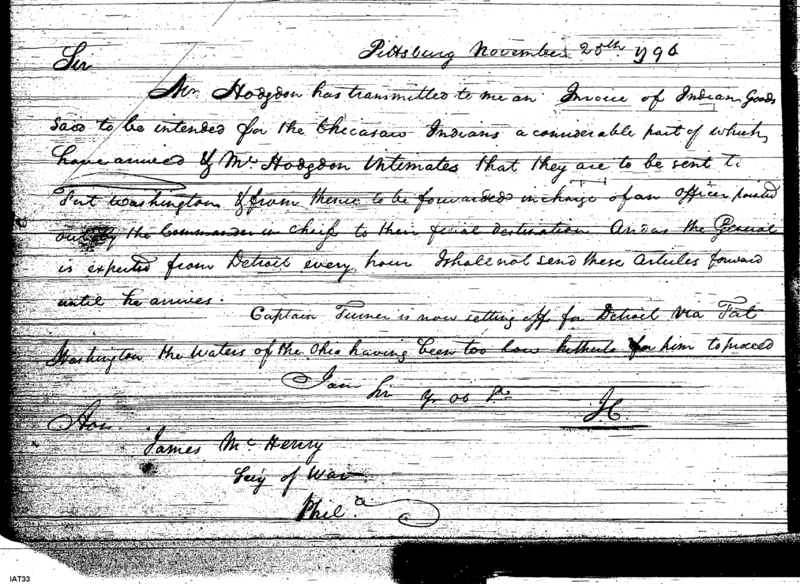 Pittsburg November 25th 1796
Sir
Mr. Hodgdon has transmitted to me an Invoice of Indian Goods
said to be intended for the Checasaw Indians a considerable part of which,
have arrived & Mr Hodgdon Intimates that they are to be sent to
Fort Washington & from thence to be forwarded in charge of an officer pointed
out by the Commander in Chief to their final destination And as the General
is expected from Detroit every hour I shall not send these articles forward
until he arrives.
Captain Turner is now setting off for Detroit via Fort
Washington the Waters of the Ohio having been too low hitherto for him to proceed
I am Sir Yr Ob Sr
JC
Hon.
James McHenry
Secy of War
Phila
IAT33